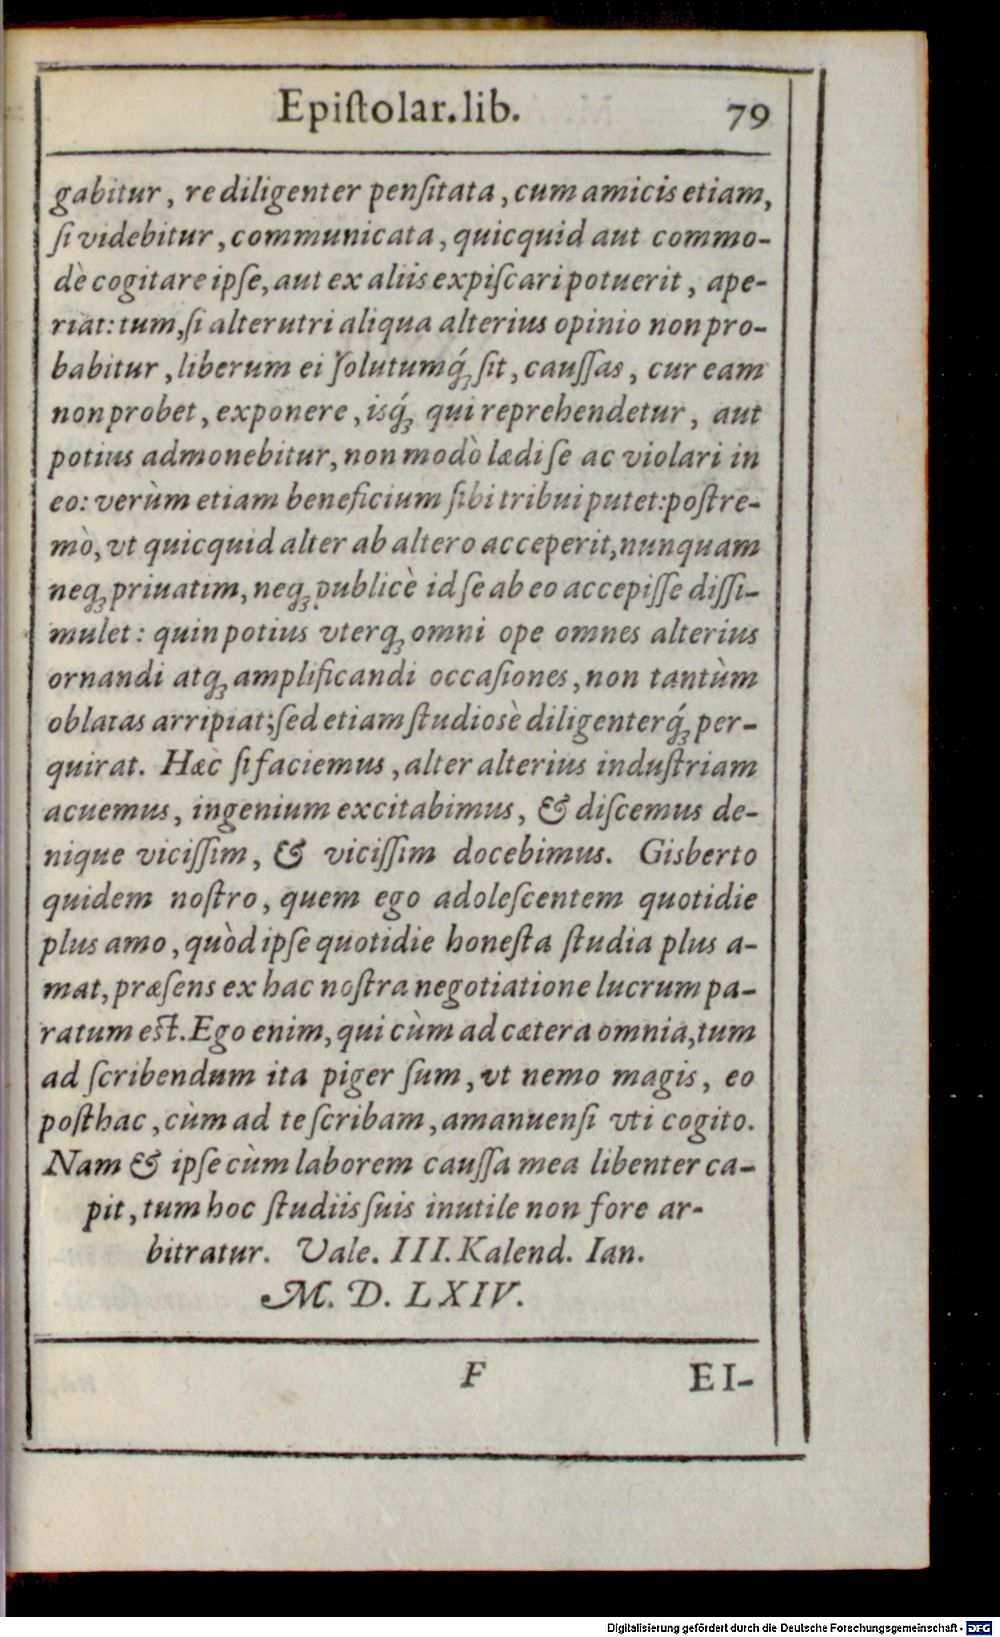 Epiſtolar. lib. 79
gabitur, re diligenter penſitata, cum amicis etiam,
ſi videbitur, communicata, quicquid aut commo-
dè cogitare ipſe, aut ex aliis expiſcari potuerit, ape-
riat: tum, ſi alterutri aliqua alterius opinio non pro-
babitur, liberum ei ſolutumq́ꝫ ſit, cauſſas, cur eam
non probet, exponere, isq́ꝫ qui reprehendetur, aut
potius admonebitur, non modò lædi ſe ac violari in
eo: verùm etiam beneficium ſibi tribui putet: poſtre-
mò, vt quicquid alter ab altero acceperit, nunquam
neqꝫ priuatim, neqꝫ publicè id ſe ab eo accepiſſe diſſi-
mulet: quin potius vterqꝫ omni ope omnes alterius
ornandi atqꝫ amplificandi occaſiones, non tantùm
oblatas arripiat; ſed etiam ſtudiosè diligenterq́ꝫ per-
quirat. Hæc ſi faciemus, alter alterius induſtriam
acuemus, ingenium excitabimus, & diſcemus de-
nique viciſſim, & viciſſim docebimus. Gisberto
quidem noſtro, quem ego adoleſcentem quotidie
plus amo, quòd ipſe quotidie honeſta ſtudia plus a-
mat, præſens ex hac noſtra negotiatione lucrum pa-
ratum eſt. Ego enim, qui cùm ad cætera omnia, tum
ad ſcribendum ita piger ſum, vt nemo magis, eo
poſthac, cùm ad te ſcribam, amanuenſi vti cogito.
Nam & ipſe cùm laborem cauſſa mea libenter ca-
pit, tum hoc ſtudiis ſuis inutile non fore ar-
bitratur. Vale. III. Kalend. Ian.
M. D. LXIV.
F EI-
Digitalisierung gefördert durch die Deutsche Forschungsgemeinschaft - DFG